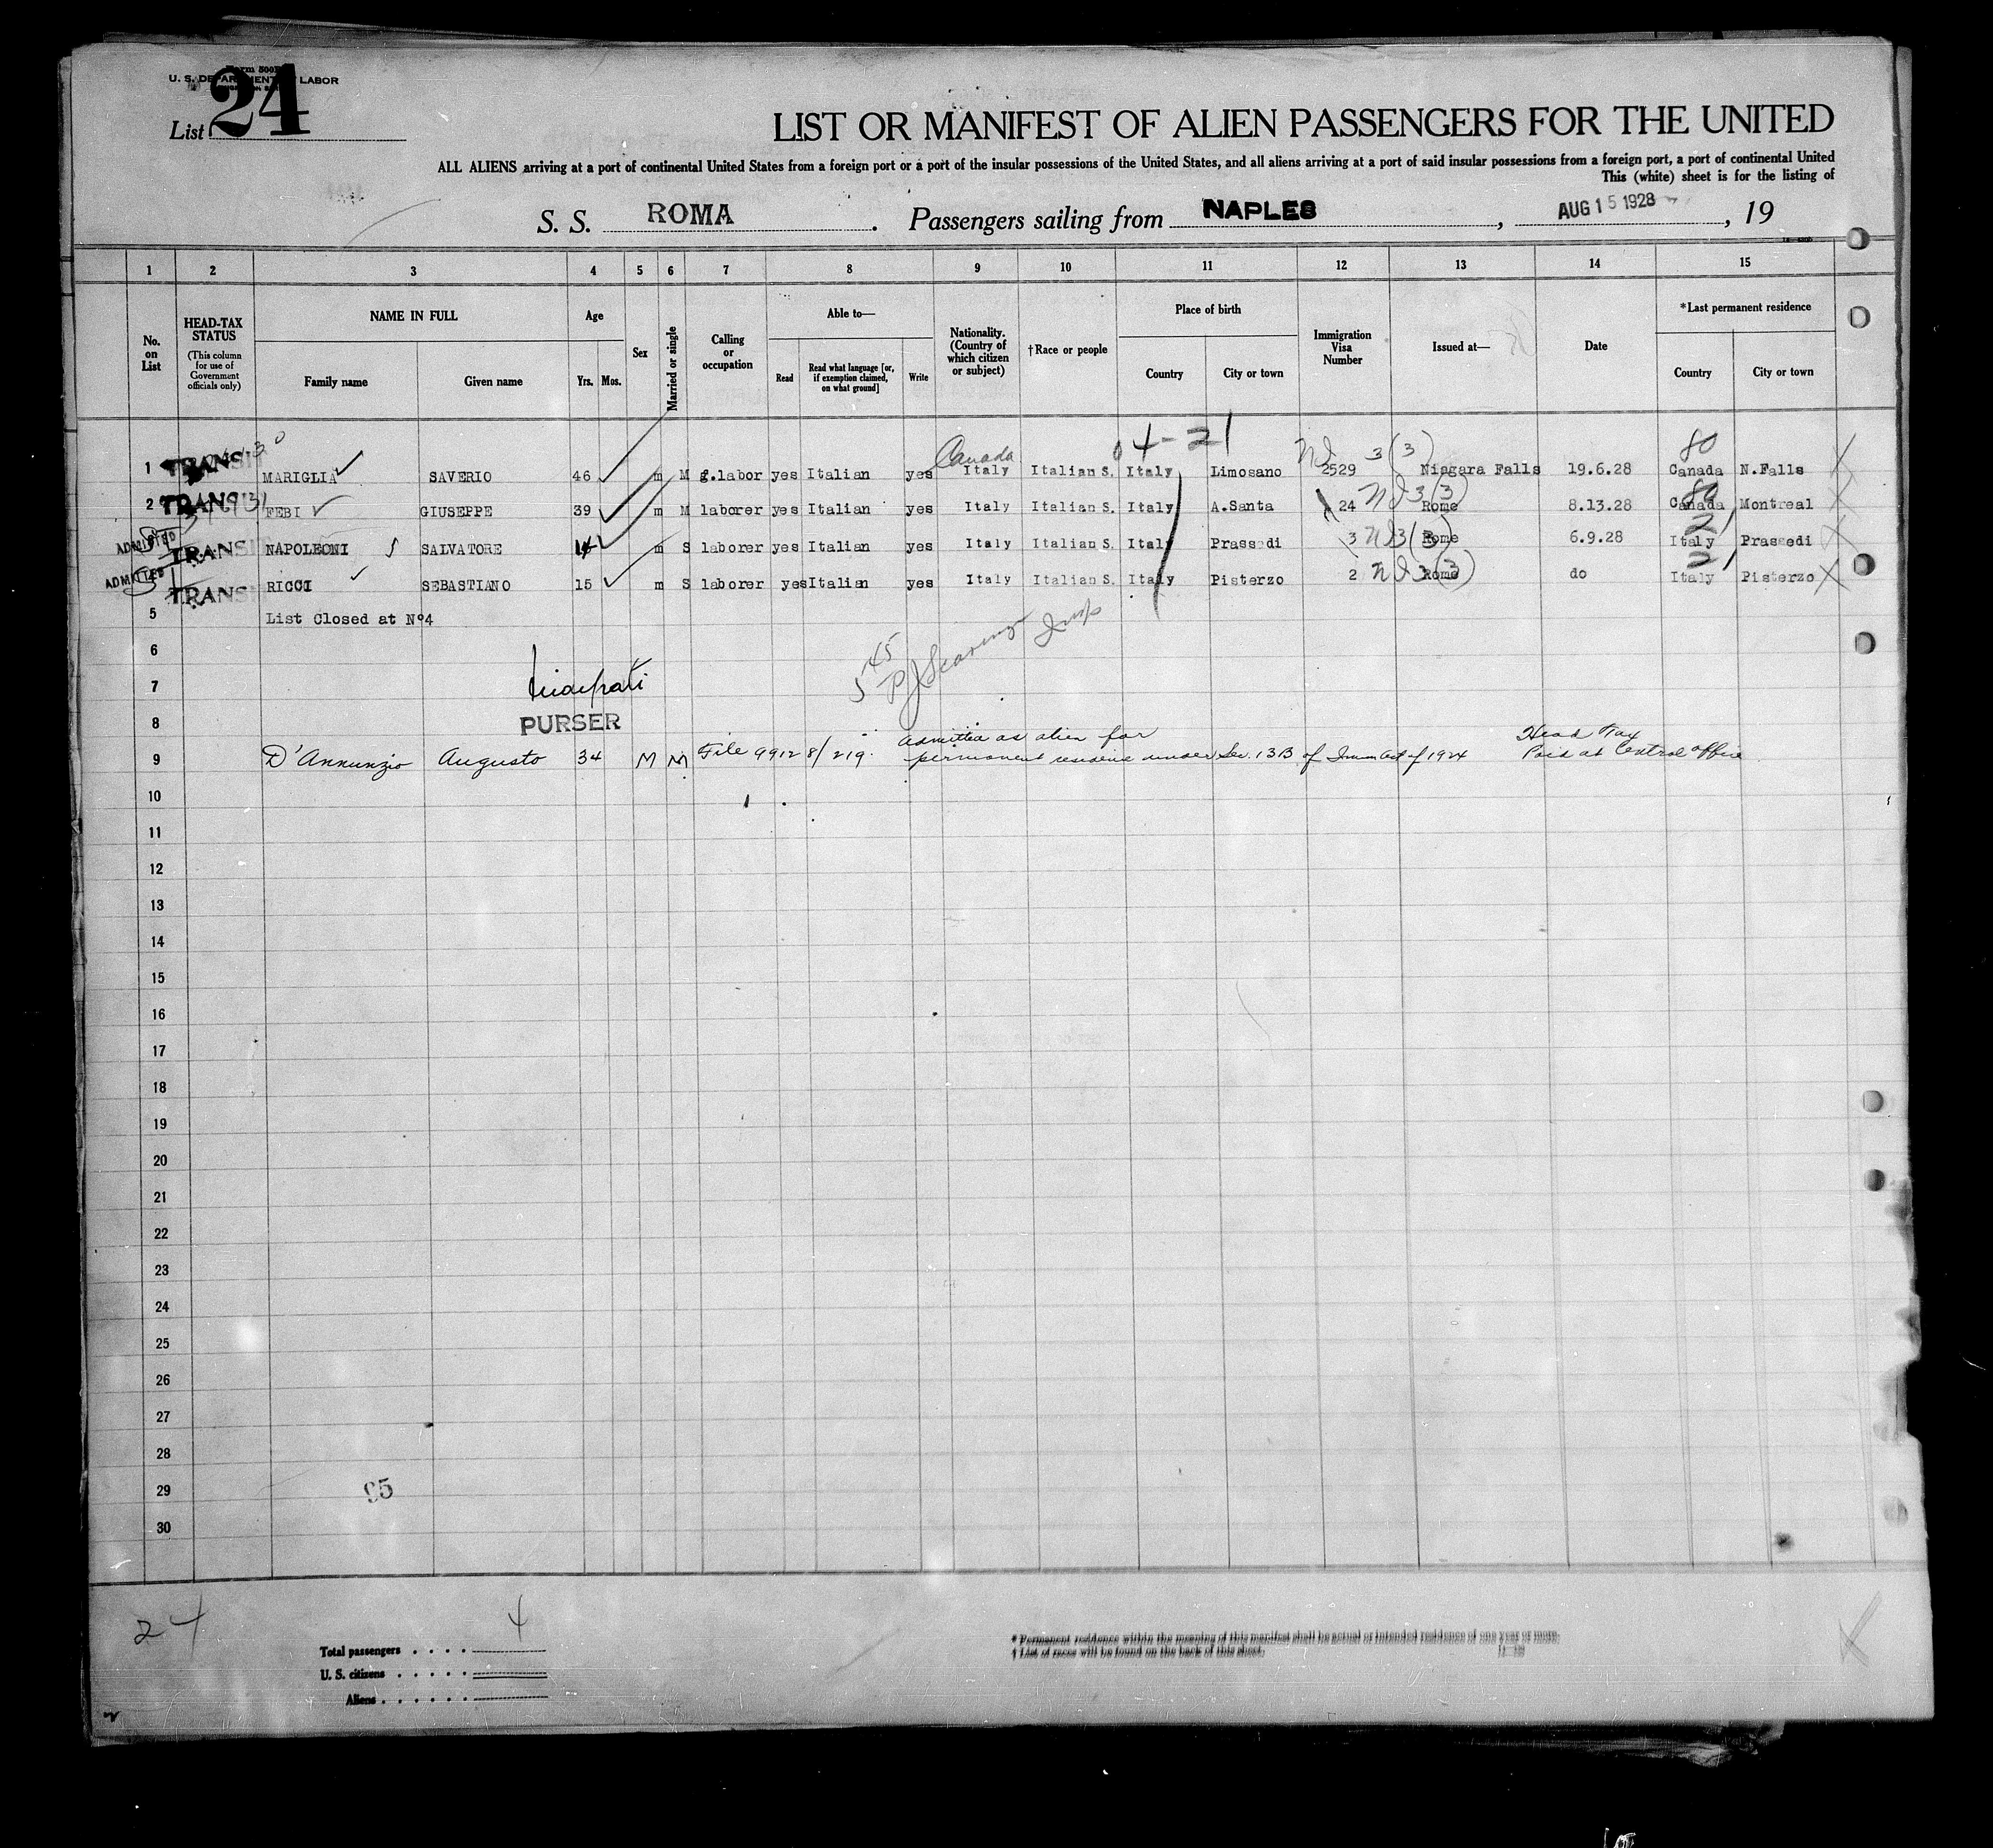 U. S. DEPARTMENT OF LABOR
List 24
LIST OR MANIFEST OF ALIEN PASSENGERS FOR THE UNITED
ALL ALIENS arriving at a port of continental United States from a foreign port or a port of the insular possessions of the United States, and all aliens arriving at a port of said insular possessions from a foreign port, a port of continental United
This (white) sheet is for the listing of
S. S. ROMA. Passengers sailing from NAPLES, AUG 15 1928, 19
1 2 3 4 5 6 7 8 9 10 11 12 13 14 15
No. on List
HEAD-TAX STATUS (This column for use of Government officials only)
NAME IN FULL
Family name Given name
Age
Yrs. Mos.
Sex
Married or single
Calling or occupation
Able to—
Read Read what language [or, if exemption claimed, on what ground] Write
Nationality. (Country of which citizen or subject)
†Race or people
Place of birth
Country City or town
Immigration Visa Number
Issued at—
Date
*Last permanent residence
Country City or town
04-21
Canada 3(3) 80
1 TRANSIT MARIGLIA SAVERIO 46 m M g.labor yes Italian yes Italy Italian S. Italy Limosano 2529 Niagara Falls 19.6.28 Canada N.Falls
2 TRANSIT FEBI GIUSEPPE 39 m M laborer yes Italian yes Italy Italian S. Italy A.Santa 24 3(3) Rome 8.13.28 80 Canada Montreal
ADMITTED TRANSIT NAPOLEONI SALVATORE 14 m S laborer yes Italian yes Italy Italian S. Italy Prassedi 3 3(3) Rome 6.9.28 21 Italy Prassedi
ADMITTED TRANSIT RICCI SEBASTIANO 15 m S laborer yes Italian yes Italy Italian S. Italy Pisterzo 2 3(3) Rome do 21 Italy Pisterzo
5 List Closed at Nº4
6
7
8 PURSER
9 D'Annunzio Augusto 34 M M File 99128/219. Admitted as alien for permanent residence under Sec. 13B of Imm Act of 1924 Head Tax Paid at Central Office
10
11
12
13
14
15
16
17
18
19
20
21
22
23
24
25
26
27
28
29
30
95
24
Total passengers . . . . 4
U. S. citizens . . . . .
Aliens . . . . . .
* Permanent residence within the meaning of this manifest shall be actual or intended residence of one year or more.
† List of races will be found on the back of this sheet.